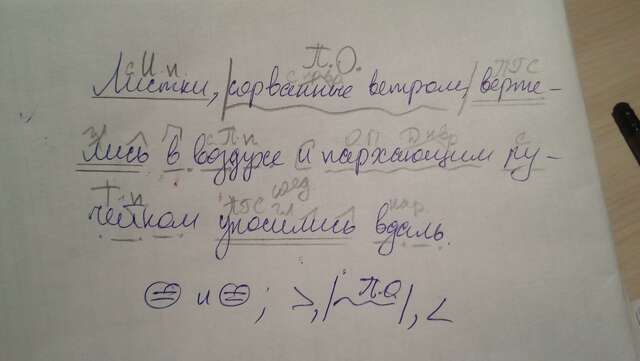 П.О.
с. И.п. ПГС
Листки, сорванные ветром, верте-
с. П.п ОП с.
лись в воздухе и пархающим ру-
Т.п ПГС нар.
чейком уносились вдаль.
и ; >, | П.О. |, <